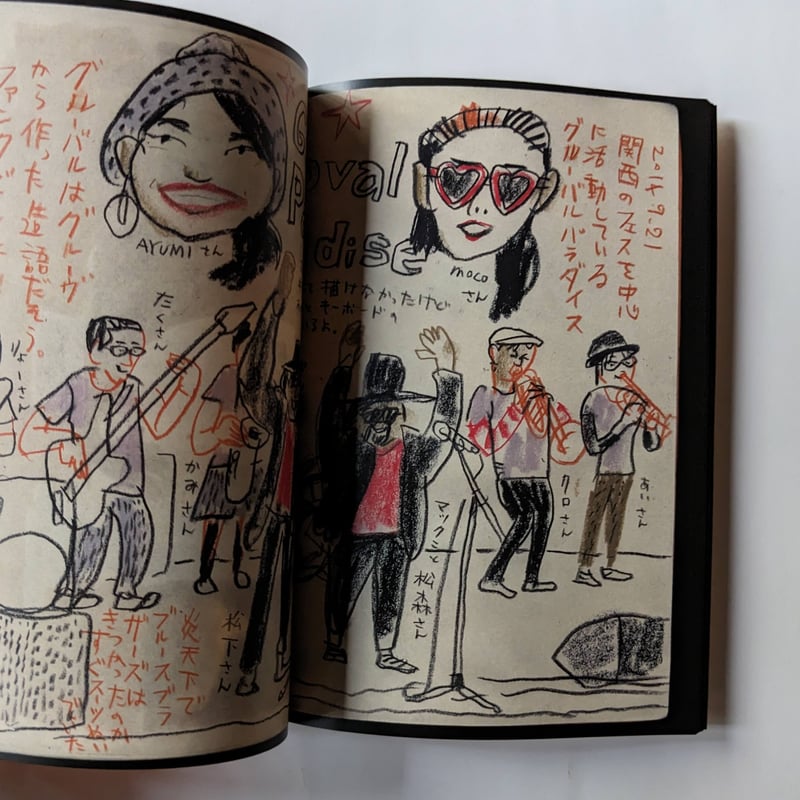 2014.9.21
関西のフェスを中心
に活動している
グルーバルパラダイス
moco
さん
oval
disc
描けなかったけど
キーボードの
るよ。
マックミと松森さん
クロさん
あいさん
AYUMIさん
グルーバルはグルーヴ
から作った造語だそう。
たくさん
りょーさん
かみさん
松下さん
炎天下で
ブルースブラ
ザーズは
きつかったのか
すぐスーツぬい
でいた